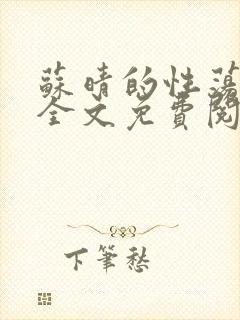 蘇晴的性蕩
全文免費閱
下筆愁